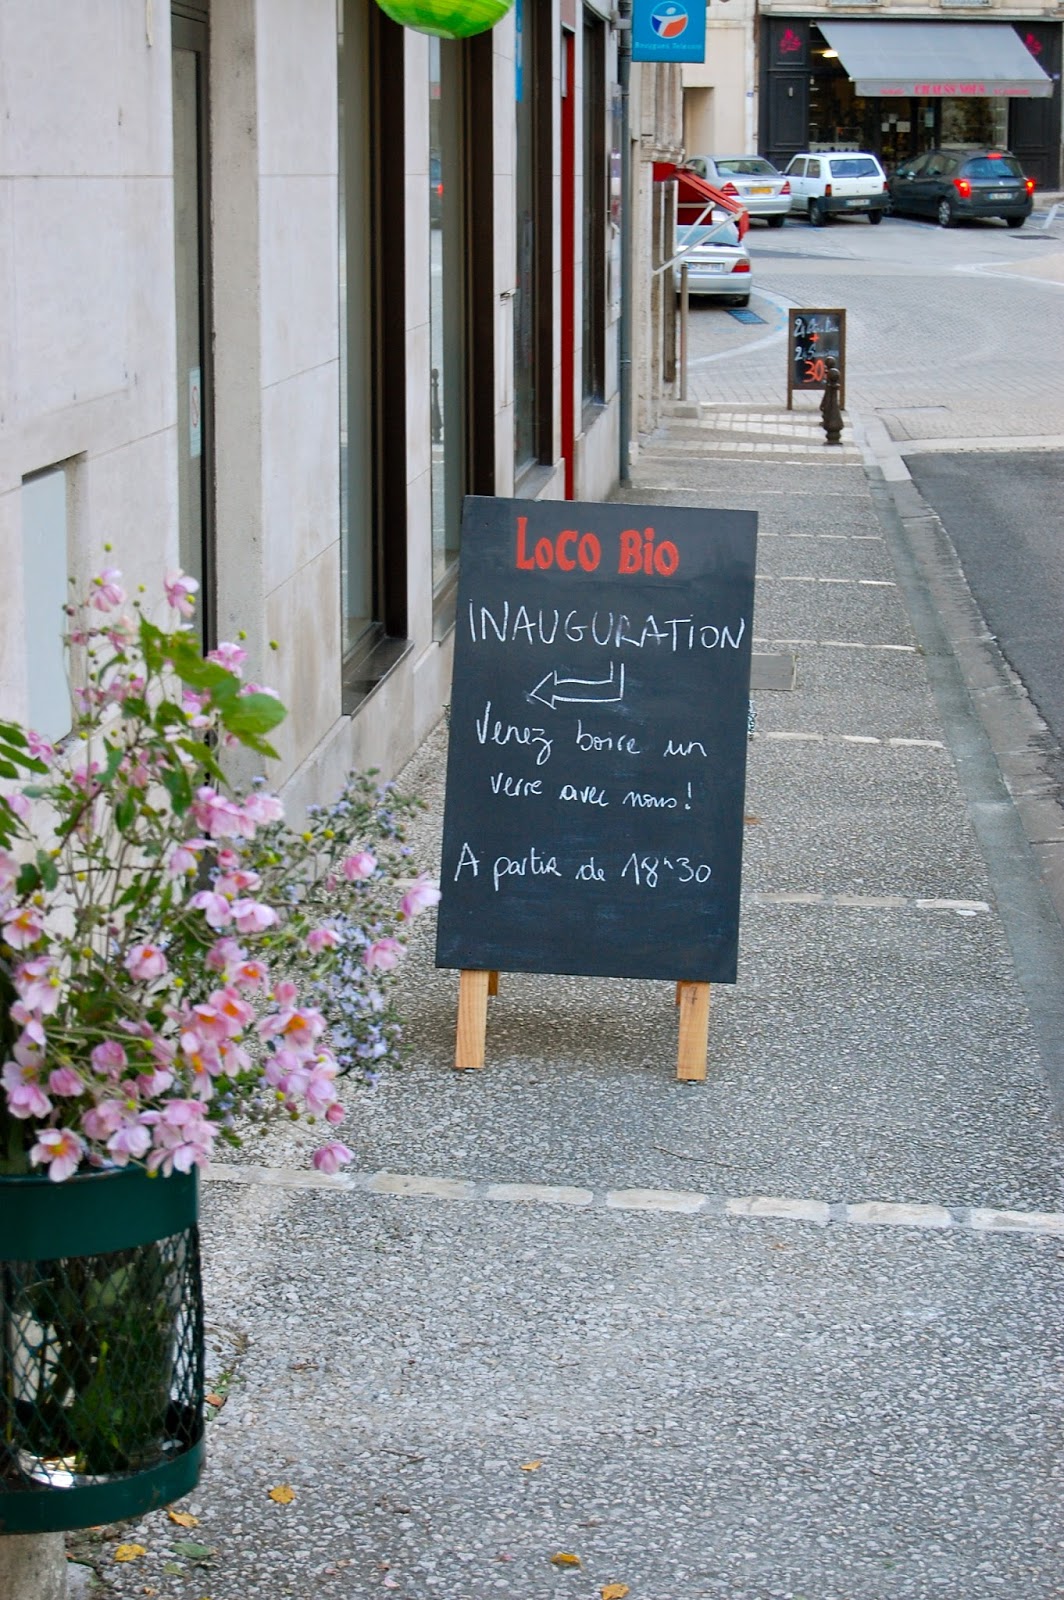 Bouygues Telecom
CHAUSS'NOUS
2
+
2
30
LoCO Bio
INAUGURATION
Venez boire un
verre avec nous!
A partir de 18h30